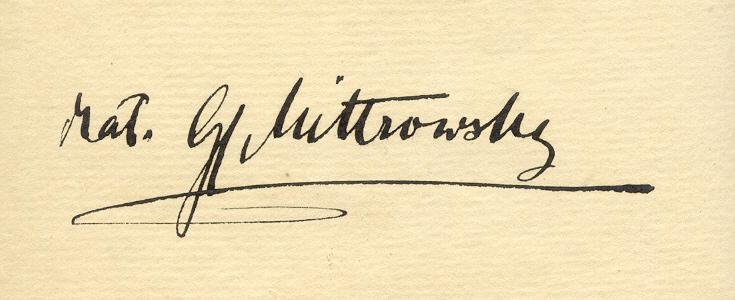 Nat. Gf Mittrowsky